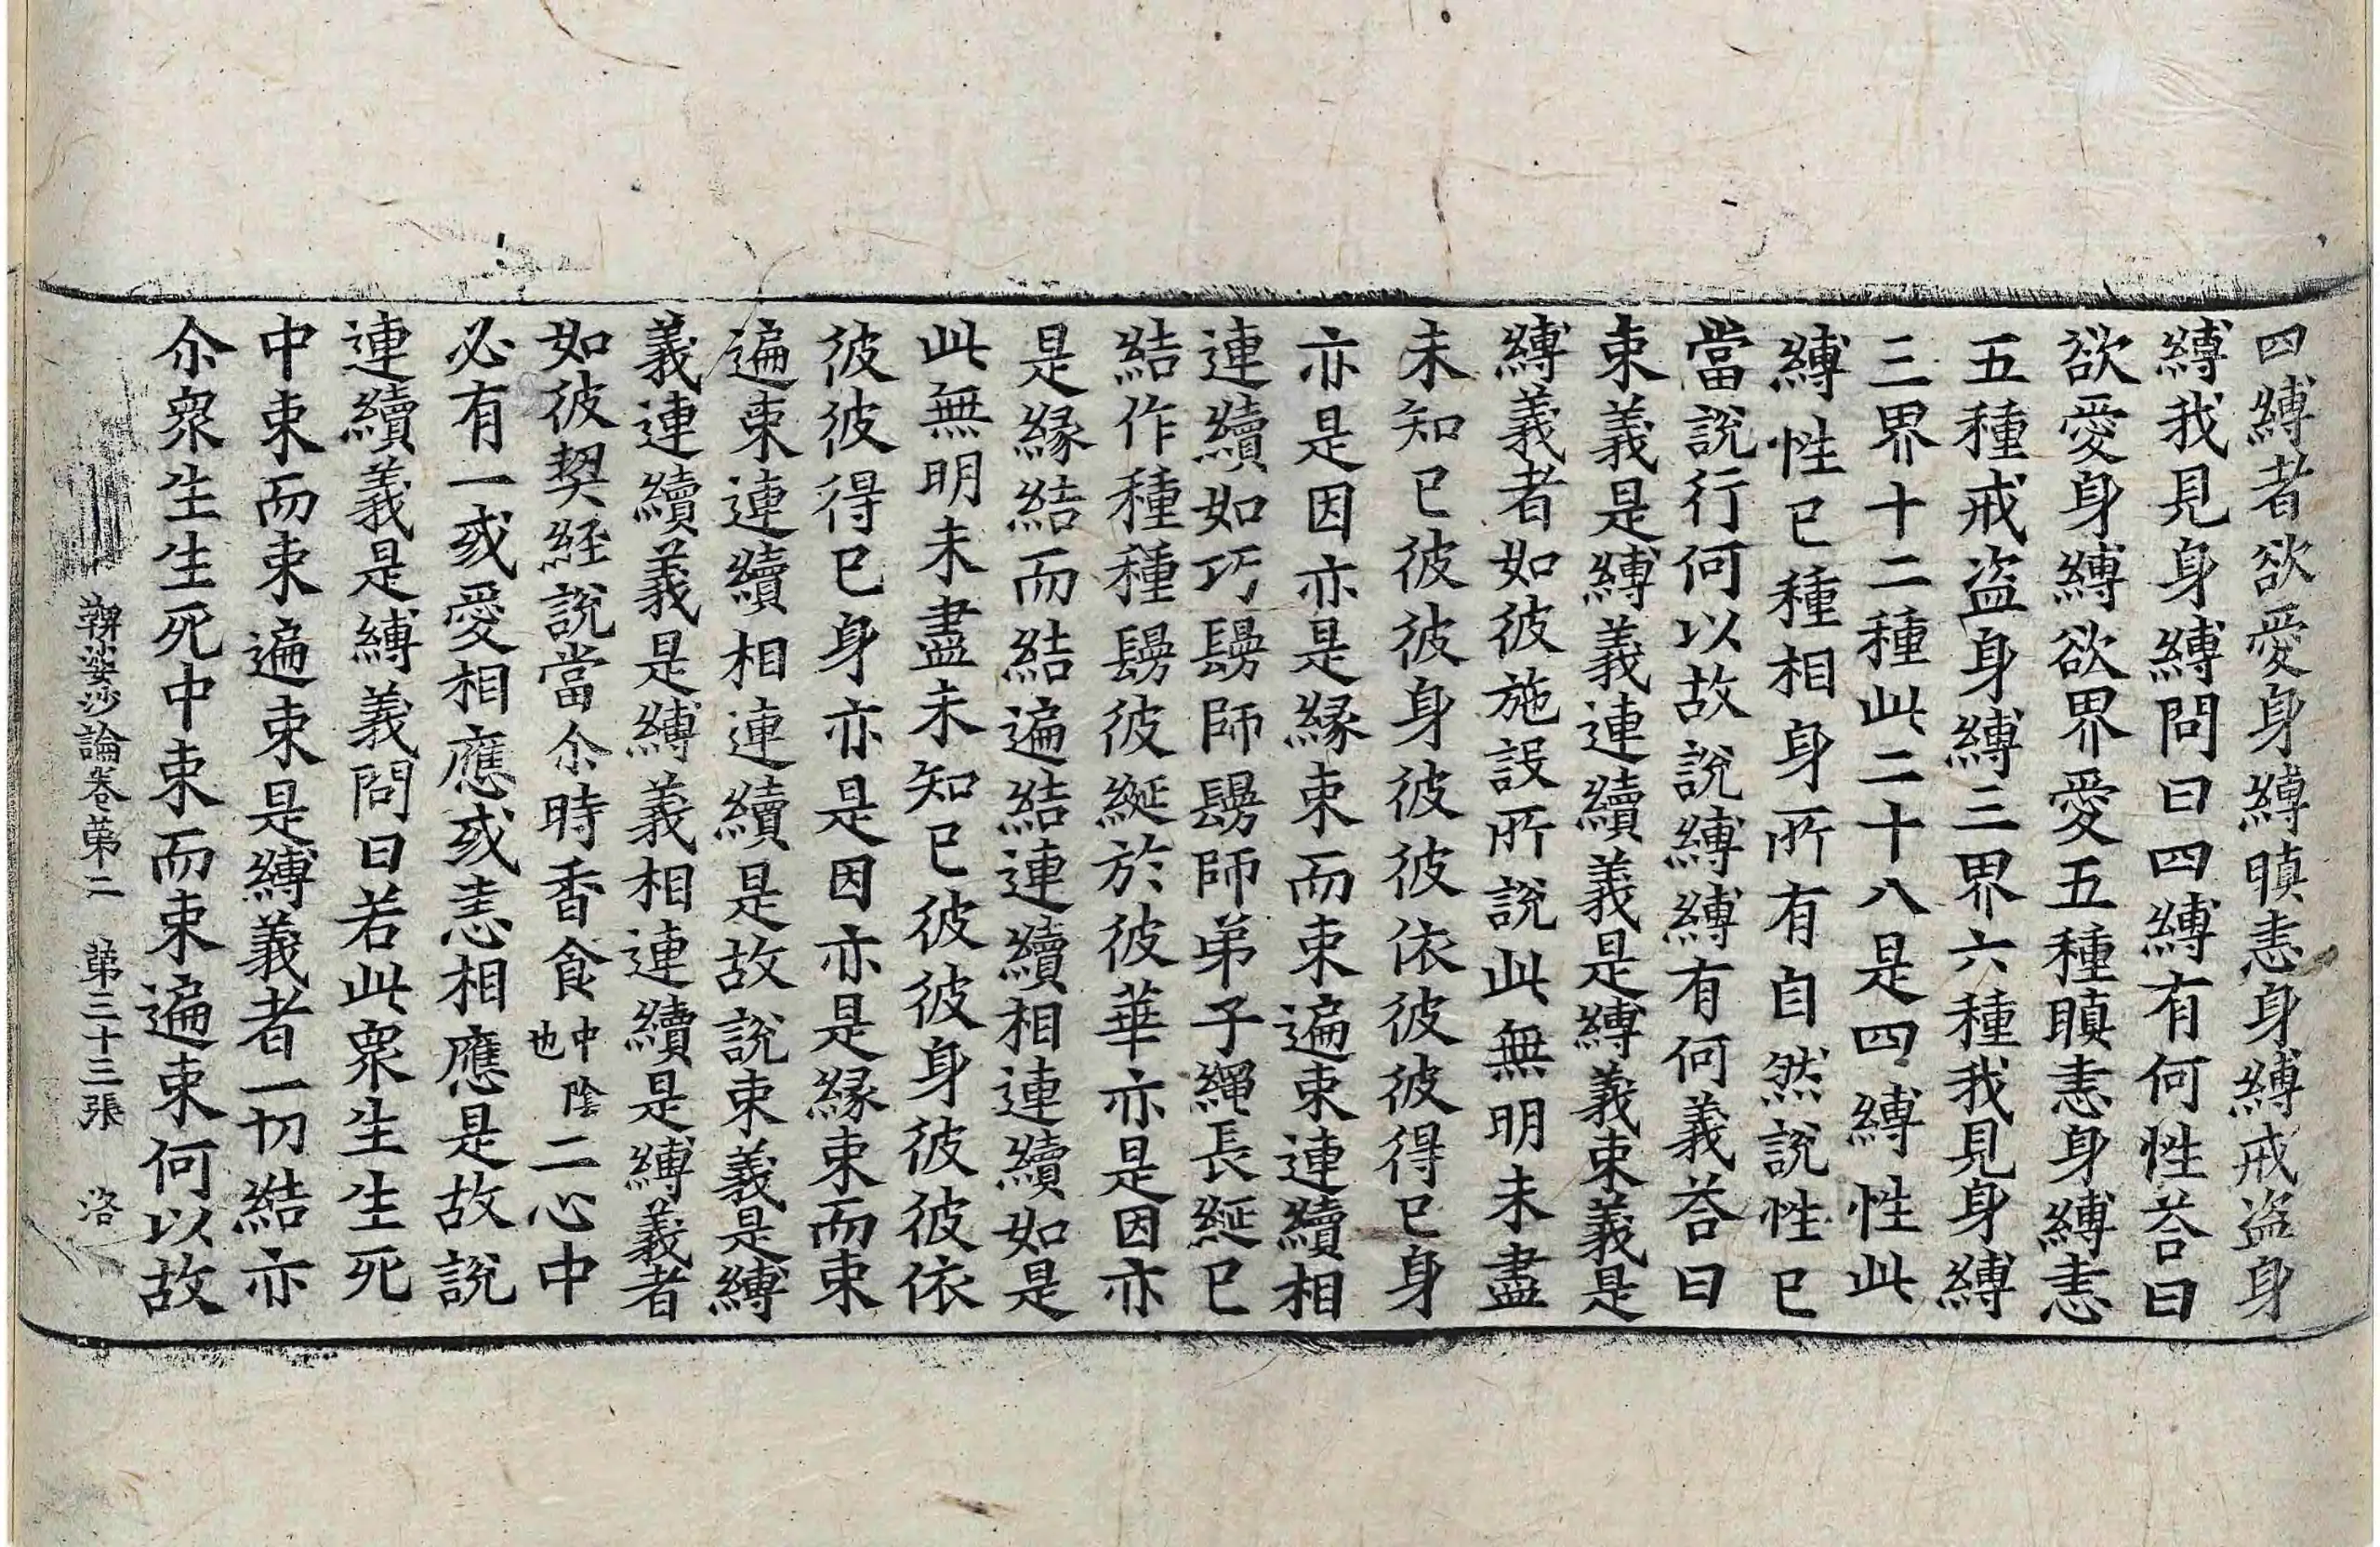 四縛者欲愛身縛瞋恚身縛戒盜身
縛我見身縛問曰四縛有何性荅曰
欲愛身縛欲界愛五種瞋恚身縛恚
五種戒盜身縛三界六種我見身縛
三界十二種此二十八是四縛性此
縛性已種相身所有自然說性已
當說行何以故說縛縛有何義荅曰
束義是縛義連續義是縛義束義是
縛義者如彼施設所說此無明未盡
未知已彼彼身彼彼依彼彼得已身
亦是因亦是緣束而束遍束連續相
連續如巧鬘師鬘師弟子繩長綖已
結作種種鬘彼綖於彼華亦是因亦
是緣結而結遍結連續相連續如是
此無明未盡未知已彼彼身彼彼依
彼彼得已身亦是因亦是緣束而束
遍束連續相連續是故說束義是縛
義連續義是縛義相連續是縛義者
如彼契經說當尒時香食中陰也二心中
必有一或愛相應或恚相應是故說
連續義是縛義問曰若此眾生生死
中束而束遍束是縛義者一切結亦
尒眾生生死中束而束遍束何以故
鞞婆沙論卷第二 第三十三張 洛